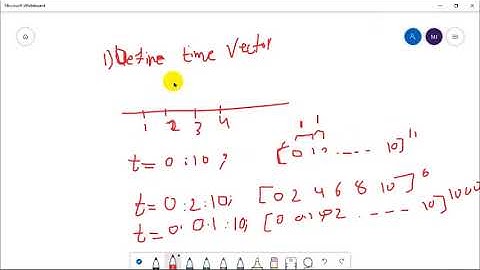 Microsoft Whiteboard
MI
1) Define time Vector
1 1
1 2 3 4
t = 0 : 10 ; [ 0 1 2 ---- 10 ] 11
t = 0 : 2 : 10; [ 0 2 4 6 8 10 ] 6
t = 0: 0.1 : 10; [ 0 ---- 10 ]